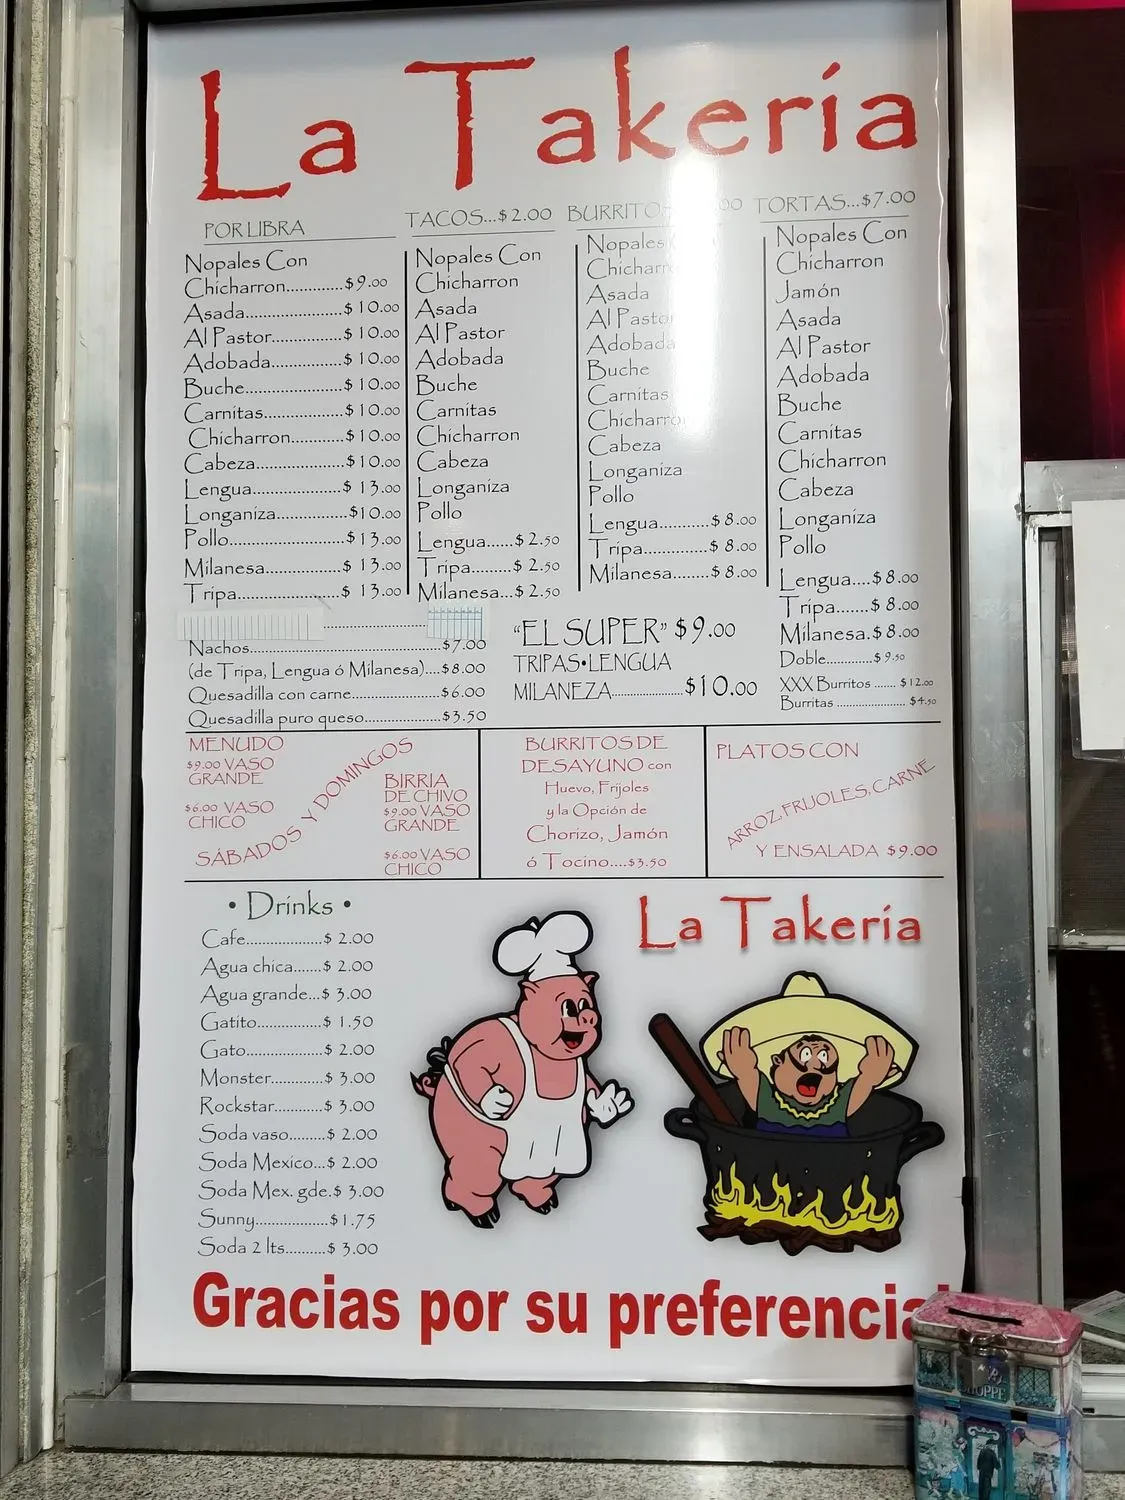 La Takería
POR LIBRA
Nopales Con
Chicharron............$9.00
Asada......................$10.00
Al Pastor................$10.00
Adobada................$10.00
Buche.....................$10.00
Carnitas.................$10.00
Chicharron...........$10.00
Cabeza...................$10.00
Lengua....................$ 13.00
Longaniza...............$10.00
Pollo........................$ 13.00
Milanesa.................$ 13.00
Tripa.......................$ 13.00
TACOS...$2.00
Nopales Con
Chicharron
Asada
Al Pastor
Adobada
Buche
Carnitas
Chicharron
Cabeza
Longaniza
Pollo
Lengua......$2.50
Tripa..........$ 2.50
Milanesa...$2.50
BURRITOS
Nopales
Asada
Buche
Carnitas
Cabeza
Longaniza
Pollo
Lengua..........$8.00
Tripa..............$ 8.00
Milanesa........$8.00
TORTAS...$7.00
Nopales Con
Chicharron
Jamón
Asada
Al Pastor
Adobada
Buche
Carnitas
Chicharron
Cabeza
Longaniza
Pollo
Lengua....$8.00
Tripa.......$ 8.00
Milanesa.$8.00
Doble............$9.50
XXX Burritos .......$12.00
Burritas ........................$4.50
Nachos....................................$7.00
(de Tripa, Lengua ó Milanesa)....$8.00
Quesadilla con carne.................$6.00
Quesadilla puro queso...............$3.50
"EL SUPER" $9.00
TRIPAS•LENGUA
MILANEZA................$10.00
MENUDO
$9.00 VASO
GRANDE
$6.00 VASO
CHICO
SÁBADOS Y DOMINGOS
BIRRIA
DE CHIVO
$9.00 VASO
GRANDE
$6.00 VASO
CHICO
BURRITOS DE
DESAYUNO con
Huevo, Frijoles
y la Opción de
Chorizo, Jamón
ó Tocino....$3.50
PLATOS CON
ARROZ, FRIJOLES, CARNE
Y ENSALADA $9.00
• Drinks •
Cafe...................$ 2.00
Agua chica.......$ 2.00
Agua grande...$ 3.00
Gatito...............$ 1.50
Gato..................$ 2.00
Monster............$ 3.00
Rockstar...........$ 3.00
Soda vaso.........$ 2.00
Soda Mexico...$ 2.00
Soda Mex. gde.$ 3.00
Sunny..................$1.75
Soda 2 lts..........$ 3.00
La Takería
Gracias por su preferencia!